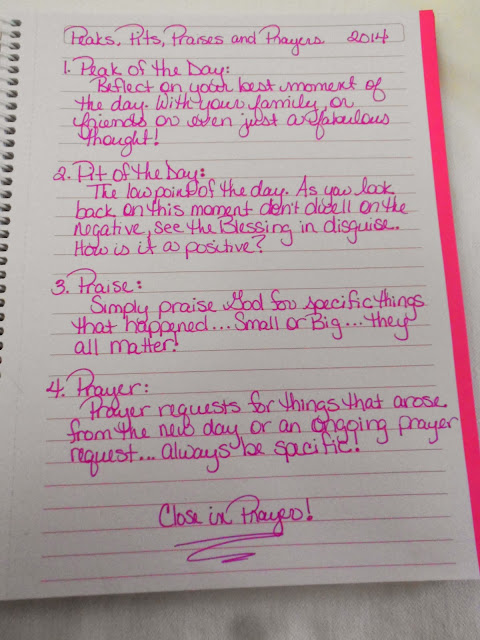 Peaks, Pits, Praises and Prayers 2014
1. Peak of the Day:
Reflect on your best moment of
the day. With your family, or
friends or even just a fabulous
thought!
2. Pit of the Day:
The low point of the day. As you look
back on this moment don't dwell on the
negative, see the Blessing in disguise.
How is it a positive?
3. Praise:
Simply praise God for specific things
that happened... Small or Big... they
all matter!
4. Prayer:
Prayer requests for things that arose
from the new day or an ongoing prayer
request... always be spacific!
Close in Prayer!